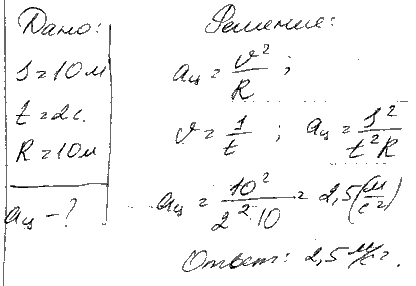 Дано:
S = 10 м
t = 2 с.
R = 10 м
aц - ?
Решение:
aц = v²/R ;
v = S/t ; aц = S²/t²R
aц = 10²/2²·10 = 2,5 (м/с²)
Ответ: 2,5 м/с².